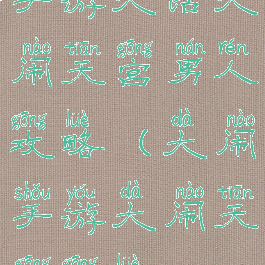 nào tiān gōng nán rén
闹天宫男人
gōng lüè dà nào
攻略(大闹
shǒu yóu dà nào tiān
手游大闹天
gōng gōng lüè